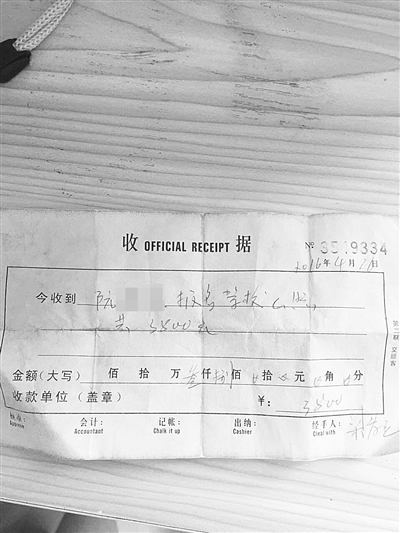 收 OFFICIAL RECEIPT 据
№ 3519334
2016年4月11日
今收到 阮 报名学校
共 3500元
金额(大写) 佰 拾 万 叁仟 佰 拾 元 角 分
收款单位(盖章) ¥: 3500
核准: 会计: 记帐: 出纳: 经手人:
Approve Accountant Chalk it up Cashier Cleal with
第二联 交顾客